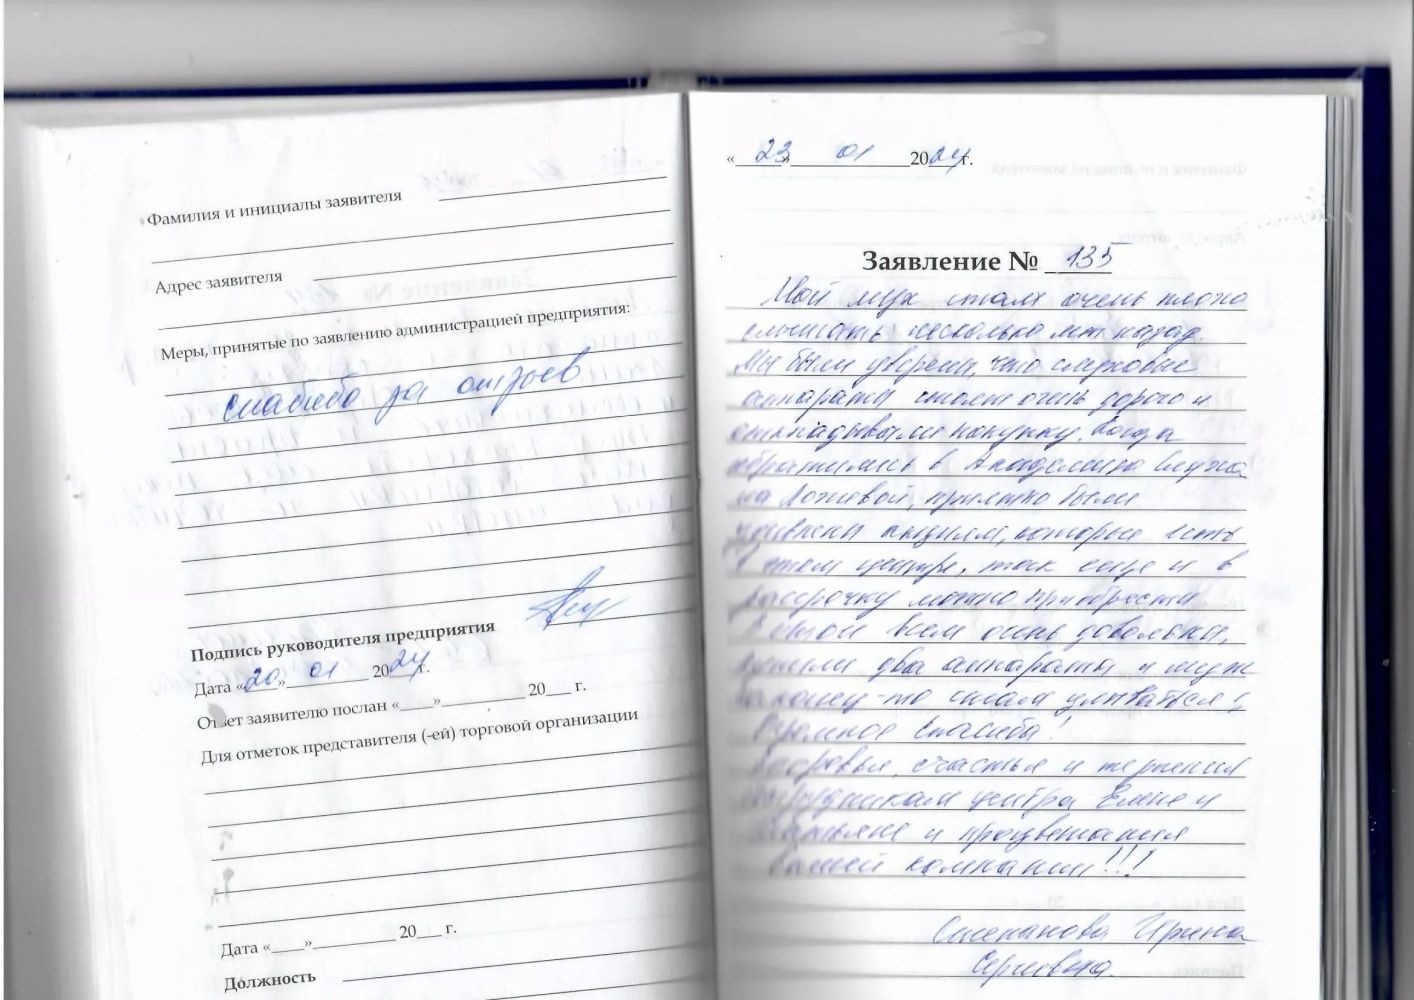 Фамилия и инициалы заявителя
Адрес заявителя
Меры, принятые по заявлению администрацией предприятия:
спасибо за отзыв
Подпись руководителя предприятия
Дата «20» 01 2024 г.
Ответ заявителю послан «___» 20___ г.
Для отметок представителя (-ей) торговой организации
Дата «___» 20___ г.
Должность
«23» 01 2024 г.
Заявление № 135
Мой муж стал очень плохо
слышать несколько лет назад.
Мы были уверены, что слуховые
аппараты стоят очень дорого и
откладывали покупку. Когда
обратились в Академию Слуха
на , приятно были
удивлены акциям, которые есть
в этом центре, так еще и в
рассрочку можно приобрести.
В итоге всем очень довольны,
купили два аппараты и муж
наконец-то стал улыбаться
Огромное спасибо!
Здоровья, счастья и терпения
сотрудникам центра Елене и
Татьяне и процветания
вашей компании!!!
Степанова Ирина
Сергеевна